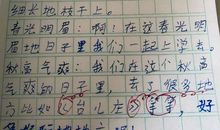 细长地枝干上。
春光明眉：啊！在这春光明
眉地日子里我们一起上学去。
秋高气爽：我们在这个秋高
气爽的日子里，去了很多地
方比如 台儿庄 等等，好